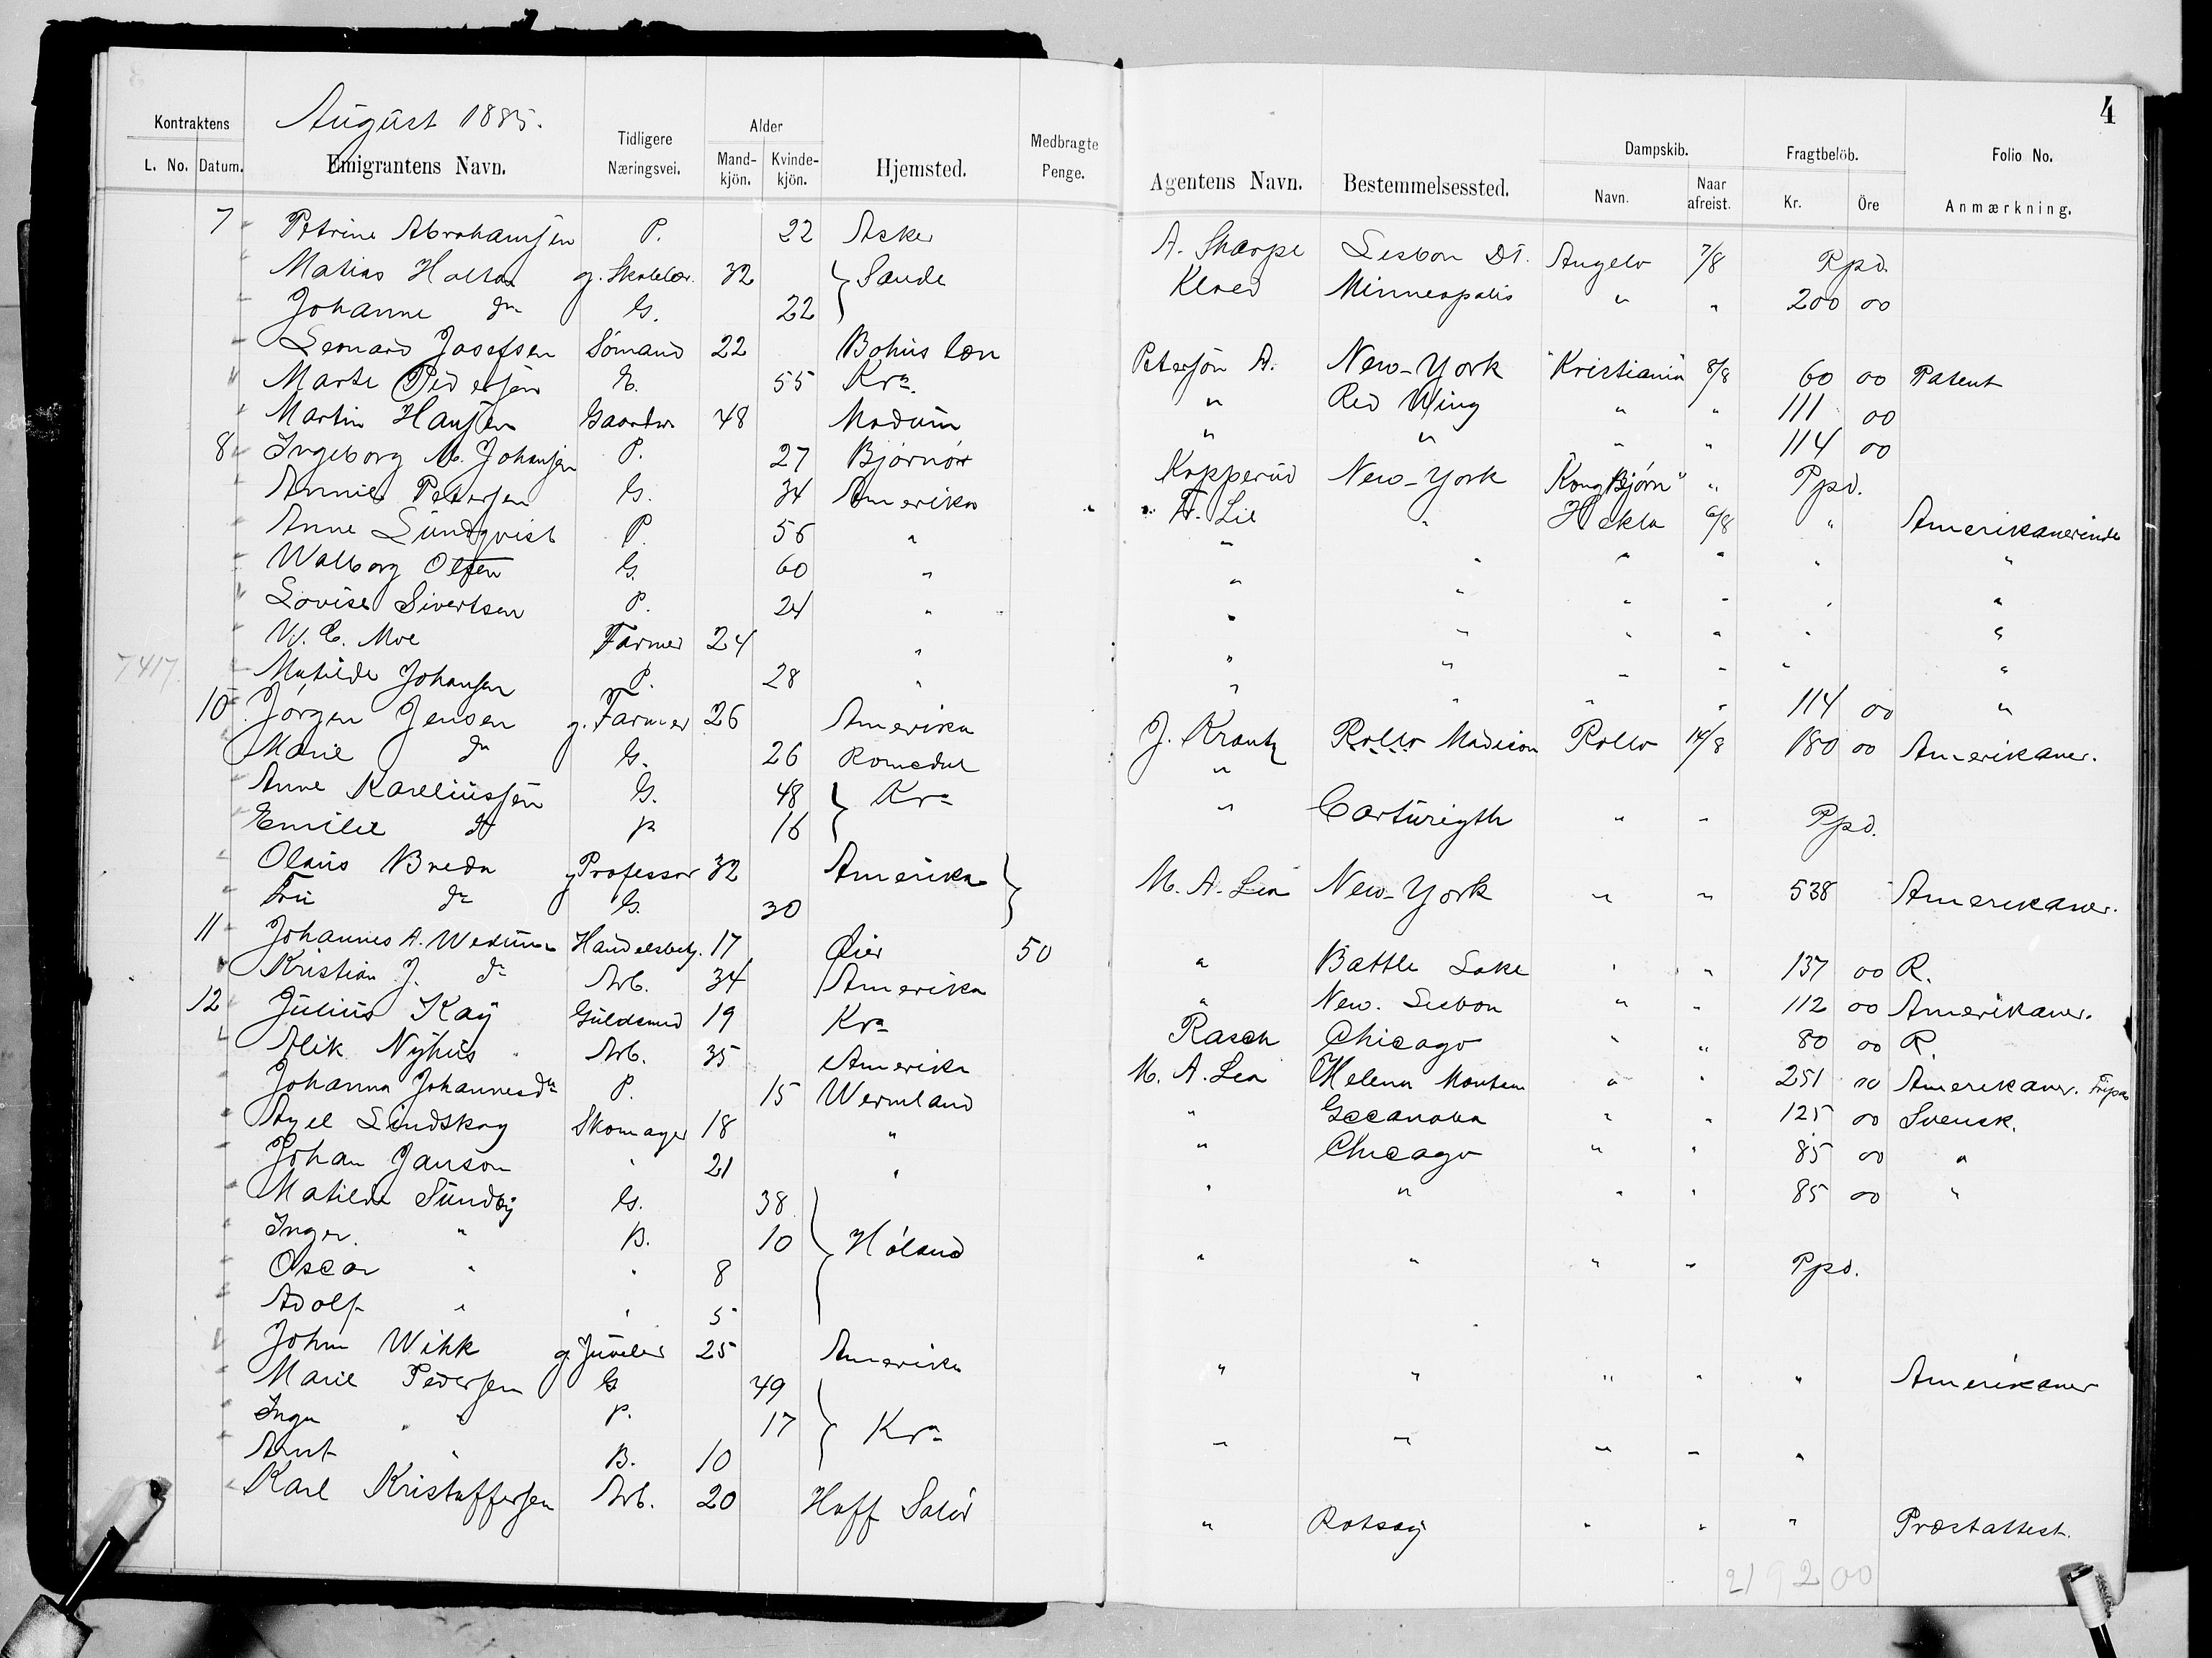 4
August 1885.
Kontraktens
L. No. Datum. Emigrantens Navn. Tidligere Næringsvei. Alder Mandkjön. Kvindekjön. Hjemsted. Medbragte Penge. Agentens Navn. Bestemmelsessted. Dampskib. Navn. Naar afreist. Fragtbelöb. Kr. Öre Folio No. Anmærkning.
7 " Petrine Abrahamsen P. 22 Asker A. Sharpe Lisbon Dt. Angelo 7/8 Ppd.
" Matias Holtan g. Skolelær. 32 } Sande Klaed Minneapolis " " 200 00
" Johanne do G. 22
" Leonard Josefsen Sömand 22 Bohus læn Petersön A. New-York "Kristiania" 8/8 60 00 Patent
" Marte Pedersen E. 55 Kra. " Red Wing " " 111 00
" Martin Hansen Gaardbr. 48 Modum " " " " 114 00
8 " Ingeborg M. Johansen P. 27 Björnör Kopperud New-York "Kong Bjørn" " Ppd.
" Annie Petersen G. 34 Amerika Fr. Lie " Hekla 6/8 " Amerikanerinde
" Anne Lundqvist P. 56 " " " " " " "
" Walborg Olsen G. 60 " " " " " " "
" Lovise Sivertsen P. 24 " " " " " " "
" W. C. Moe Farmer 24 " " " " " " "
7417. " Matilde Johansen P. 28 " " " " " 114 00 "
10 " Jörgen Jensen g. Farmer 26 Amerika J. Krantz Rollo Madison Rollo 14/8 180 00 Amerikaner.
" Marie do G. 26 Romedal "
" Anne Kareliussen G. 48 } Kra " Carturigth " " Ppd.
" Emilie do P. 16
" Olaus Breda g Professor 32 Amerika } M. A. Lea New-York " " 538 Amerikaner.
" Fru do G. 30
11 " Johannes A. Wedum Handelsbetj. 17 Öier 50 " Battle Lake " " 137 00 R.
" Kristian J. do Arb. 34 Amerika " New. Lisbon " " 112 00 Amerikaner.
12 " Julius Kay Guldsmed 19 Kra Rasch Chicago " " 80 00 R.
" Alik Nyhus Arb. 35 Amerika M. A. Lea Helena Montana " " 251 00 Amerikaner.
" Johanna Johannesdr P. 15 Wermland " " " 125 00 Svensk.
" Axel Lindskog Skomager 18 " " Chicago " " 85 00 "
" Johan Janson " 21 " " " " " 85 00 "
" Matilda Sundby G. 38 } Höland " " " " Ppd.
" Inger " B. 10
" Oscar " " 8
" Adolf " " 5
" John Wihk g. Juveler 25 Amerika " " " " " Amerikaner
" Marie Pedersen G 49 } Kra " " " " "
" Inga " P. 17
" Arnt " B. 10
" Karl Kristoffersen Arb. 20 Hoff Solör " Rotsay " " " Præstattest.
2192 00